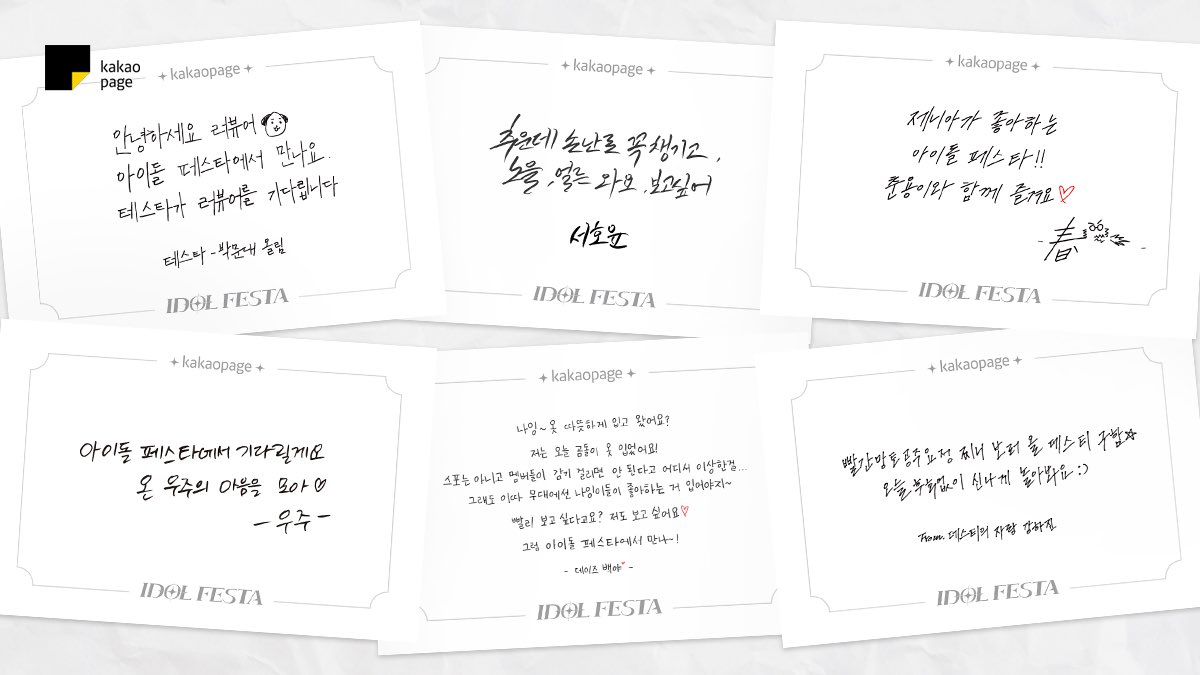 kakao
page
kakaopage
안녕하세요 러뷰어
아이돌 페스타에서 만나요.
테스타가 러뷰어를 기다립니다
테스타 - 박문대 올림
IDOL FESTA
kakaopage
추운데 손난로 꼭 챙기고,
노을, 얼른 와요. 보고싶어
서호윤
IDOL FESTA
kakaopage
제니아가 좋아하는
아이돌 페스타!!
춘용이와 함께 즐겨요♡
春
IDOL FESTA
kakaopage
아이돌 페스타에서 기다릴게요
온 우주의 마음을 모아♡
- 우주 -
IDOL FESTA
kakaopage
나잉~ 옷 따뜻하게 입고 왔어요?
저는 오늘 곰돌이 옷 입었어요!
스포는 아니고 멤버들이 감기 걸리면 안 된다고 어디서 이상한걸...
그래도 이따 무대에선 나잉이들이 좋아하는 거 입어야지~
빨리 보고 싶다고요? 저도 보고 싶어요♡
그럼 아이돌 페스타에서 만나~!
- 데이즈 백야♥ -
IDOL FESTA
kakaopage
빨간망토공주요정 찌니 보러 올 데스티 구함☆
오늘 부둥없이 신나게 놀아봐요 :)
From. 데스티의 자랑 강하진
IDOL FESTA